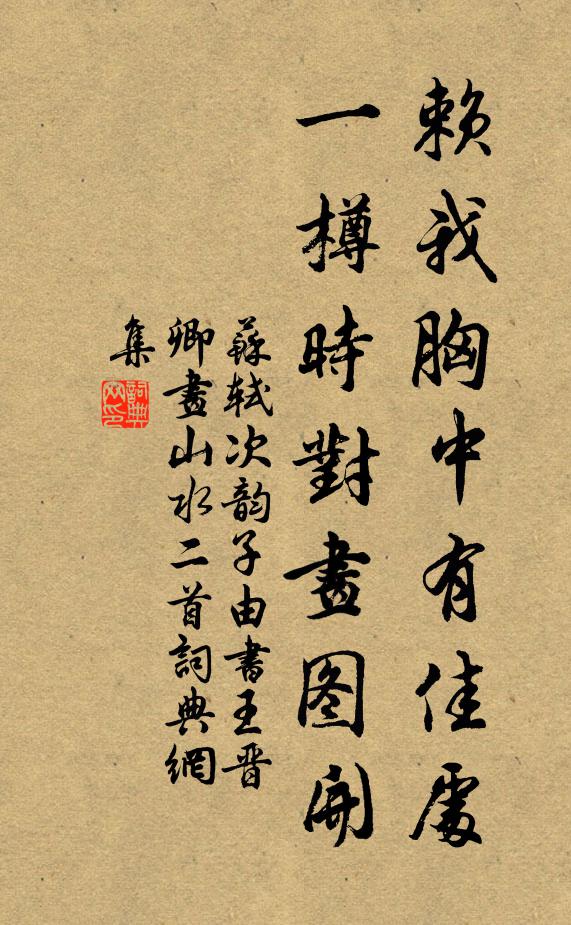 赖我胸中有佳處
一樽時對畫图開
蘇轼次韵子由書王晋
卿畫山水二首詞典網
集
詞典网印